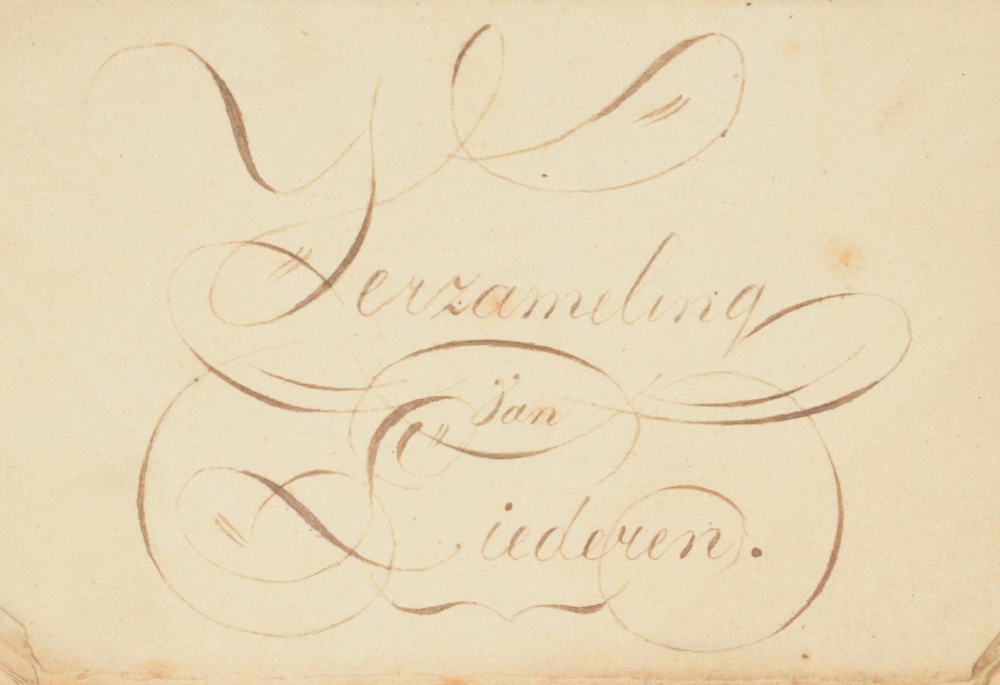 Verzameling
van
Liederen.